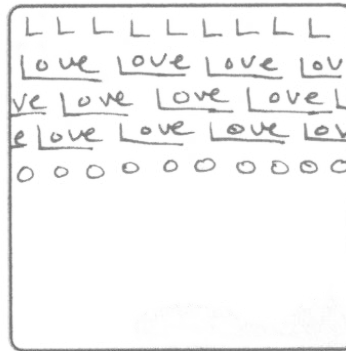 L L L L L L L L L
Love Love Love Lov
ve Love Love Love L
e Love Love Love Lov
o o o o o o o o o